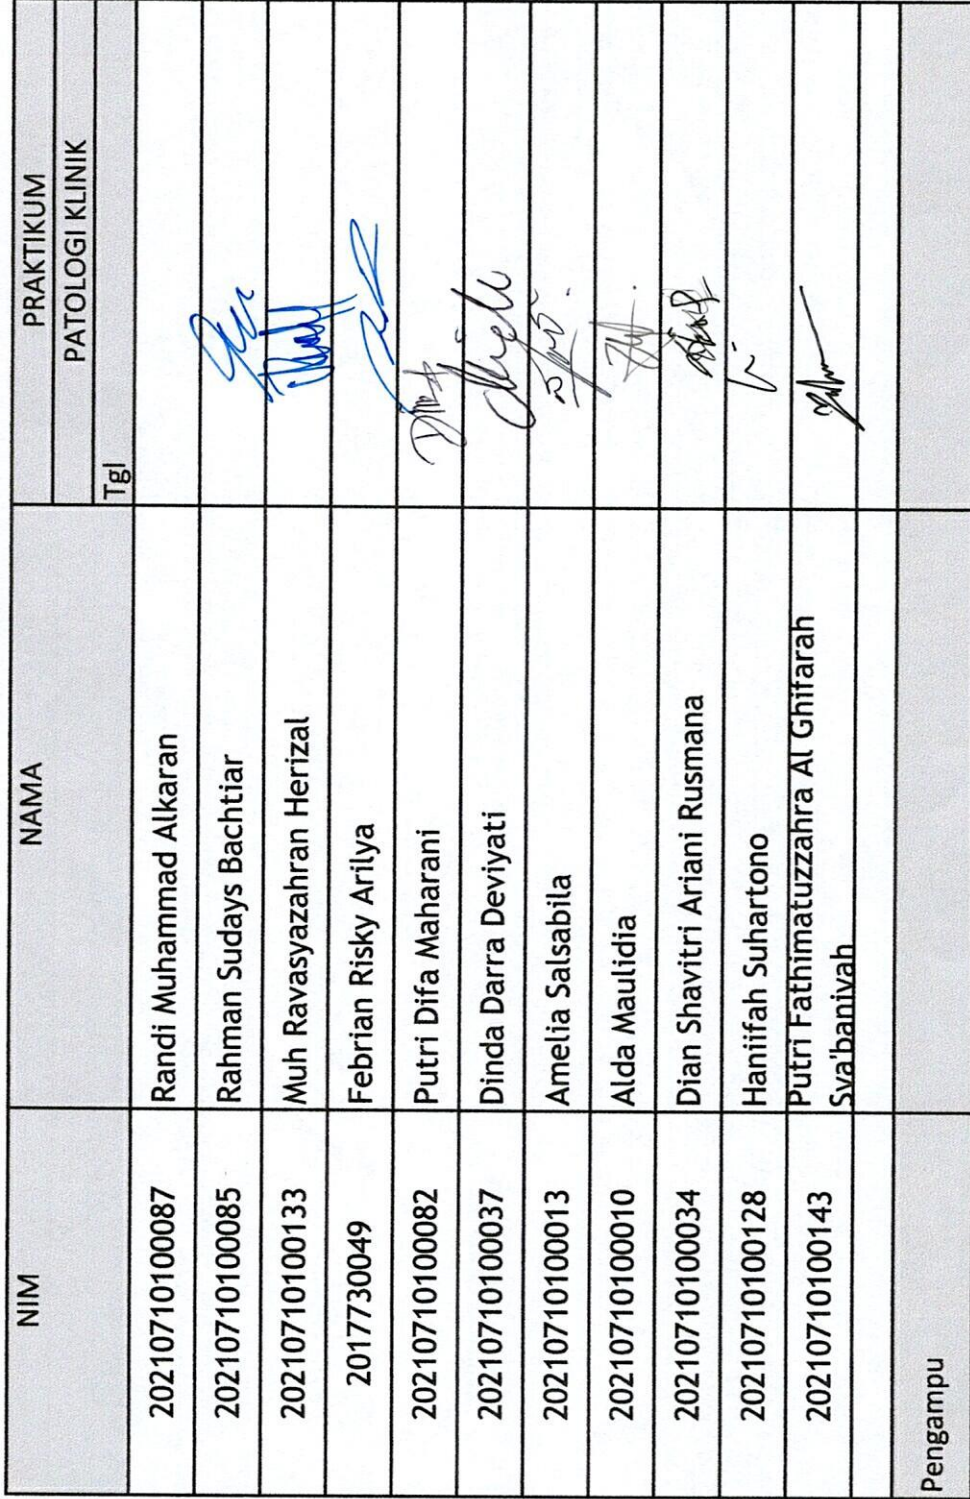 NIM NAMA PRAKTIKUM
PATOLOGI KLINIK
Tgl
20210710100087 Randi Muhammad Alkaran
20210710100085 Rahman Sudays Bachtiar
20210710100133 Muh Ravasyazahran Herizal
2017730049 Febrian Risky Arilya
20210710100082 Putri Difa Maharani
20210710100037 Dinda Darra Deviyati
20210710100013 Amelia Salsabila
20210710100010 Alda Maulidia
20210710100034 Dian Shavitri Ariani Rusmana
20210710100128 Haniifah Suhartono
20210710100143 Putri Fathimatuzzahra Al Ghifarah
Sya'baniyah
Pengampu